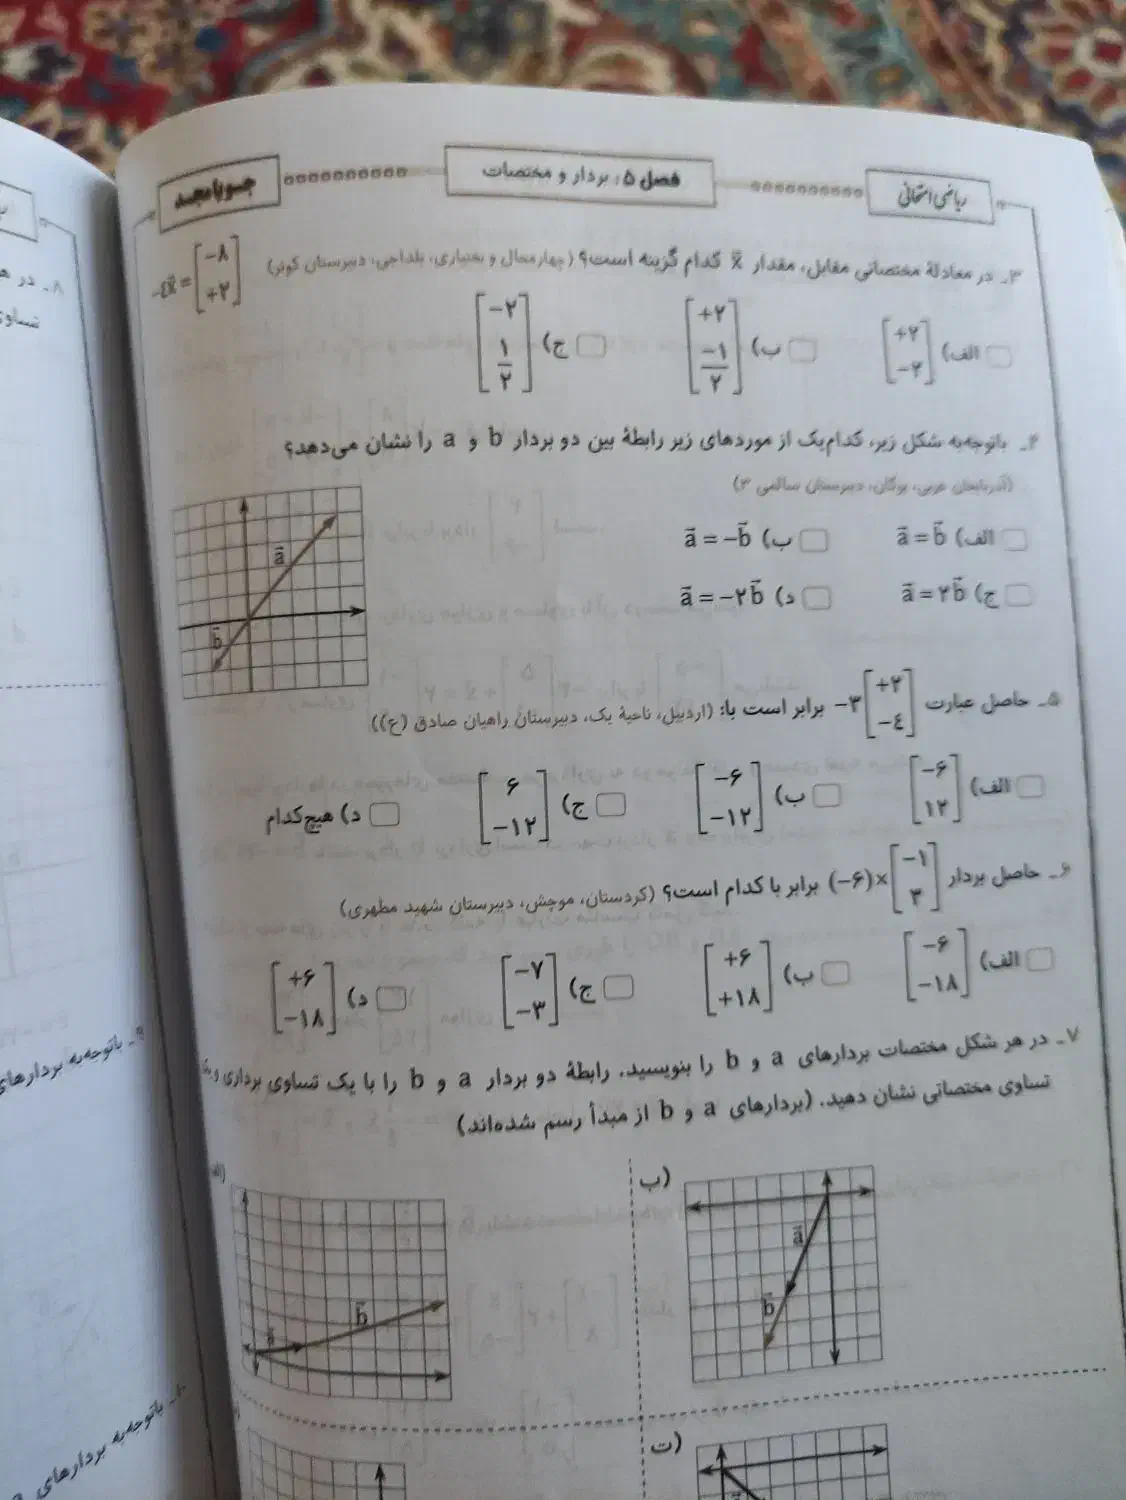 ریاضی امتحانی
فصل ۵: بردار و مختصات
جویا مجد
۳ـ در معادلهٔ مختصاتی مقابل، مقدار x⃗ کدام گزینه است؟ (چهارمحال و بختیاری، بلداجی، دبیرستان کوثر) -٤x⃗ = [-۸ +۲]
الف) [+۲ -۲] ب) [+۲ -۱/۲] ج) [-۲ ۱/۲]
۴ـ باتوجه‌به شکل زیر، کدام‌یک از موردهای زیر رابطهٔ بین دو بردار b و a را نشان می‌دهد؟
(آذربایجان غربی، بوکان، دبیرستان سالمی ۳)
الف) a⃗ = b⃗ ب) a⃗ = -b⃗
ج) a⃗ = ۲b⃗ د) a⃗ = -۲b⃗
a⃗
b⃗
۵ـ حاصل عبارت -۳[+۲ -٤] برابر است با: (اردبیل، ناحیهٔ یک، دبیرستان راهیان صادق (ع))
الف) [-۶ ۱۲] ب) [-۶ -۱۲] ج) [۶ -۱۲] د) هیچ‌کدام
۶ـ حاصل بردار (-۶)×[-۱ ۳] برابر با کدام است؟ (کردستان، موچش، دبیرستان شهید مطهری)
الف) [-۶ -۱۸] ب) [+۶ +۱۸] ج) [-۷ -۳] د) [+۶ -۱۸]
۷ـ در هر شکل مختصات بردارهای a و b را بنویسید. رابطهٔ دو بردار a و b را با یک تساوی برداری و
تساوی مختصاتی نشان دهید. (بردارهای a و b از مبدأ رسم شده‌اند)
ب)
a⃗
b⃗
b⃗
a⃗
ت)
۸ـ در
تساوی
۹ـ باتوجه‌به بردارهای
۱۰ـ باتوجه‌به بردارهای